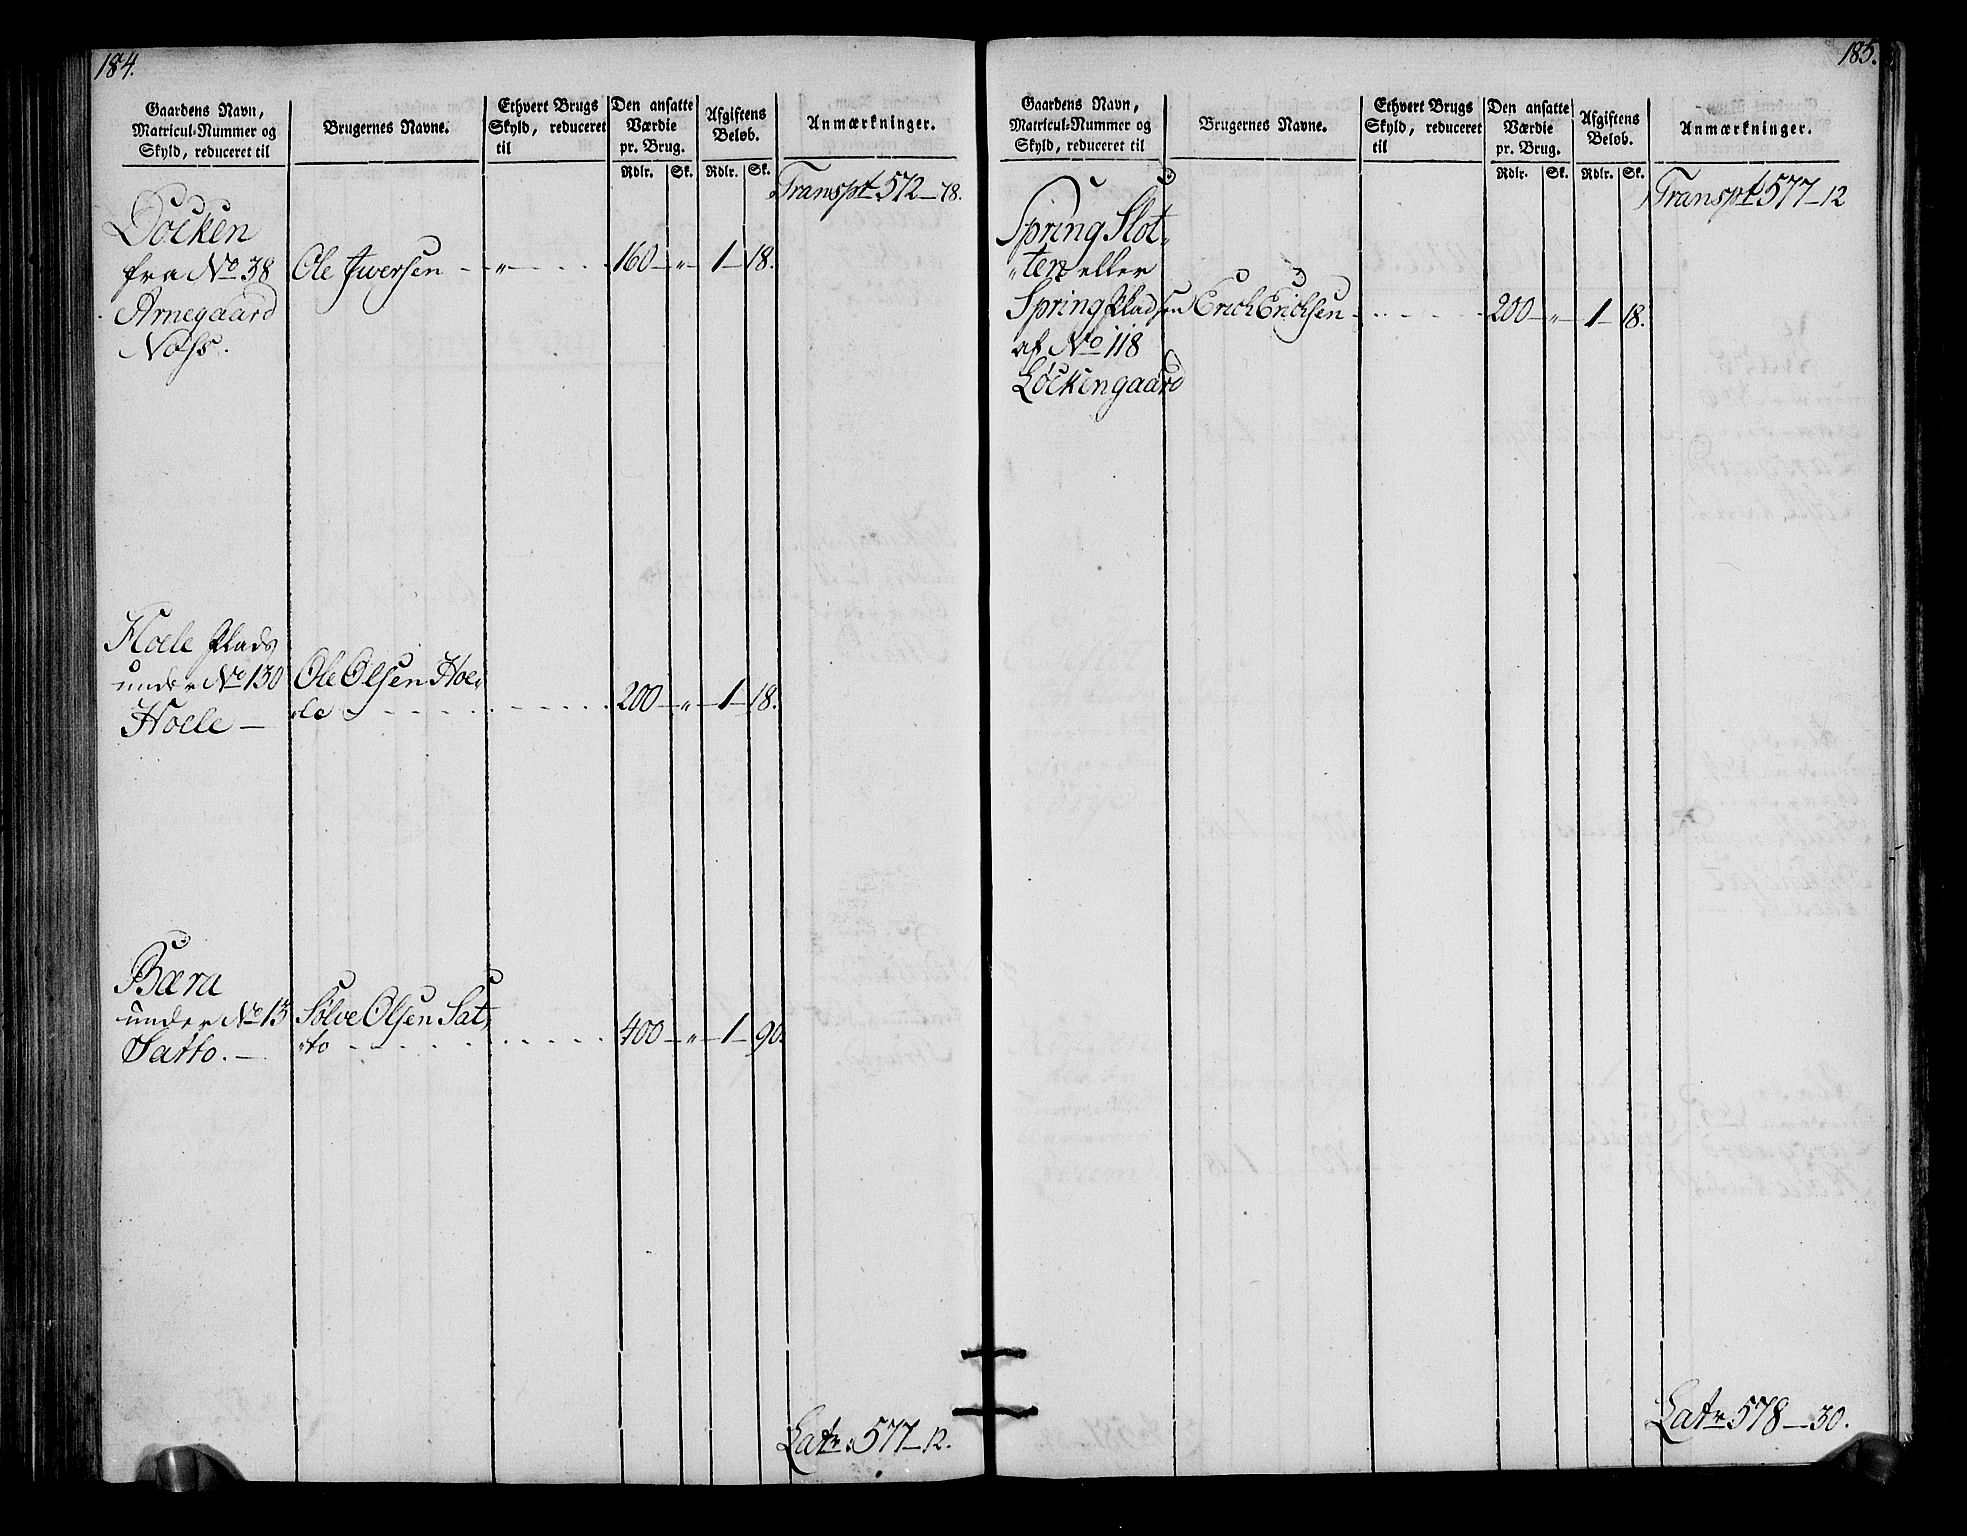 184.
Gaardens Navn,
Matricul-Nummer og
Skyld, reduceret til
Brugernes Navne.
Ethvert Brugs
Skyld, reduceret
til
Den ansatte
Værdie
pr. Brug.
Rdlr. Sk.
Afgiftens
Beløb.
Rdlr. Sk.
Anmærkninger.
Transpt 572 — 78.
Docken
fra No 38
Arnegaard
Næss.
Ole Iversen — „ 160 — „ — 1 — 18.
Hoele Plads
under No 130
Hoele —
Ole Olsen Hoe„
„le 200 — „ — 1 — 18.
Bæra
under No 13
Satto. —
Sølve Olsen Sat„
„to 400 — „ — 1 — 90.
Latr. 577 — 12.
185.
Gaardens Navn,
Matricul-Nummer og
Skyld, reduceret til
Brugernes Navne.
Ethvert Brugs
Skyld, reduceret
til
Den ansatte
Værdie
pr. Brug.
Rdlr. Sk.
Afgiftens
Beløb.
Rdlr. Sk.
Anmærkninger.
Transpt 577 — 12
Spring Slot„
„ten eller
Spring Pladsen
af No 118
Løckengaard
Erich Erichsen 200 — „ — 1 — 18.
Latr 578 — 30.